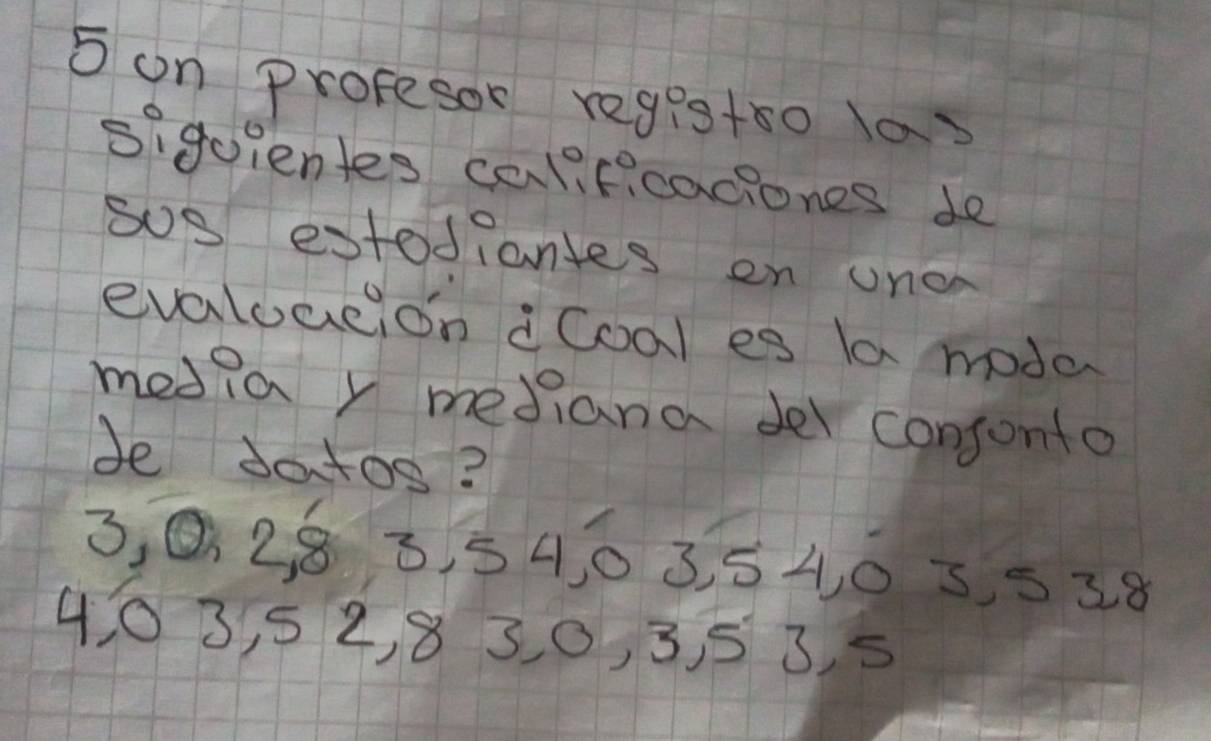 5 un profesor registro las
siguientes calificaciones de
sus estudiantes en una
evaluación ¿Cual es la moda
media y mediana del conjunto
de datos?
3,0, 2,8 3,5 4,0 3,5 4,0 3,5 3,8
4,0 3,5 2,8 3,0, 3,5 3,5